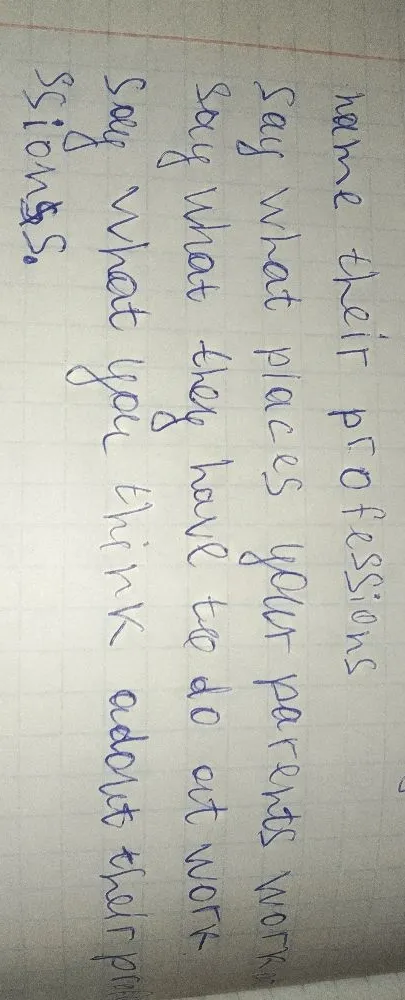 name their professions
say what places your parents work
say what they have to do at work
say what you think adout their pro
ssions.